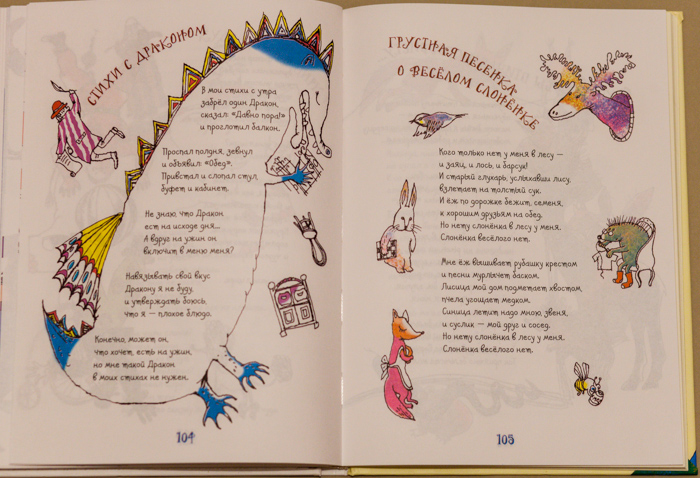 СТИХИ С ДРАКОНОМ
В мои стихи с утра
забрёл один Дракон,
сказал: «Давно пора!»
и проглотил балкон.
Проспал полдня, зевнул
и объявил: «Обед».
Привстал и слопал стул,
буфет и кабинет.
Не знаю, что Дракон
ест на исходе дня...
А вдруг на ужин он
включит в меню меня?
Навязывать свой вкус
Дракону я не буду,
и утверждать боюсь,
что я — плохое блюдо.
Конечно, может он,
что хочет, есть на ужин,
но мне такой Дракон
в моих стихах не нужен.
104
ГРУСТНАЯ ПЕСЕНКА
О ВЕСЁЛОМ СЛОНЁНКЕ
Кого только нет у меня в лесу —
и заяц, и лось, и барсук!
И старый глухарь, услыхавши лису,
взлетает на толстый сук.
И ёж по дорожке бежит, семеня,
к хорошим друзьям на обед.
Но нету слонёнка в лесу у меня.
Слонёнка весёлого нет.
Мне ёж вышивает рубашку крестом
и песни мурлычет баском.
Лисица мой дом подметает хвостом,
пчела угощает медком.
Синица летит надо мною, звеня,
и суслик — мой друг и сосед.
Но нету слонёнка в лесу у меня.
Слонёнка весёлого нет.
105